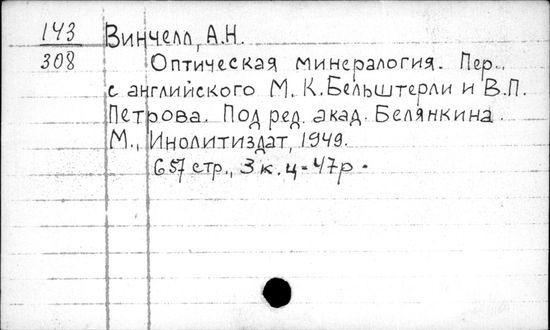 143 Винчелл, А.Н.
308 Оптическая минералогия. Пер.
с английского М.К.Бельштерли и В.П.
Петрова. Под ред. акад. Белянкина.
М., Инолитиздат, 1949.
657 стр., 3 к. ц-47р.